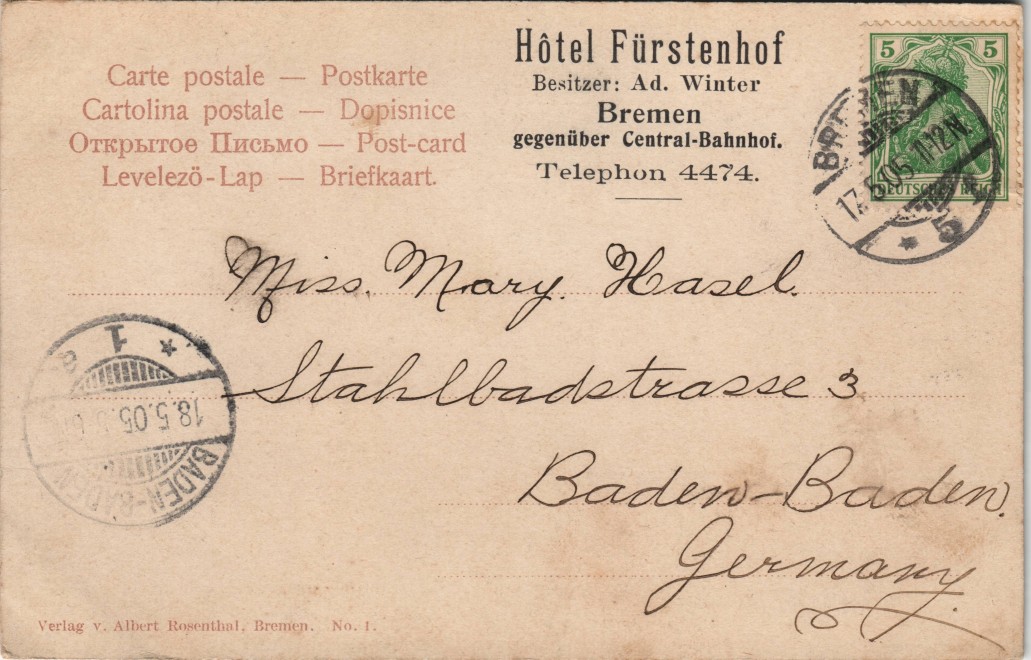 Carte postale — Postkarte
Cartolina postale — Dopisnice
Открытое Письмо — Post-card
Levelezö-Lap — Briefkaart.
Hôtel Fürstenhof
Besitzer: Ad. Winter
Bremen
gegenüber Central-Bahnhof.
Telephon 4474.
5 5
DEUTSCHES REICH
BREMEN
17.5.05. 11-12 N.
* 5
Miss. Mary. Hasel.
Stahlbadstrasse 3
Baden-Baden.
Germany
1
18.5.05.
BADEN-BADEN
Verlag v. Albert Rosenthal, Bremen. No. 1.